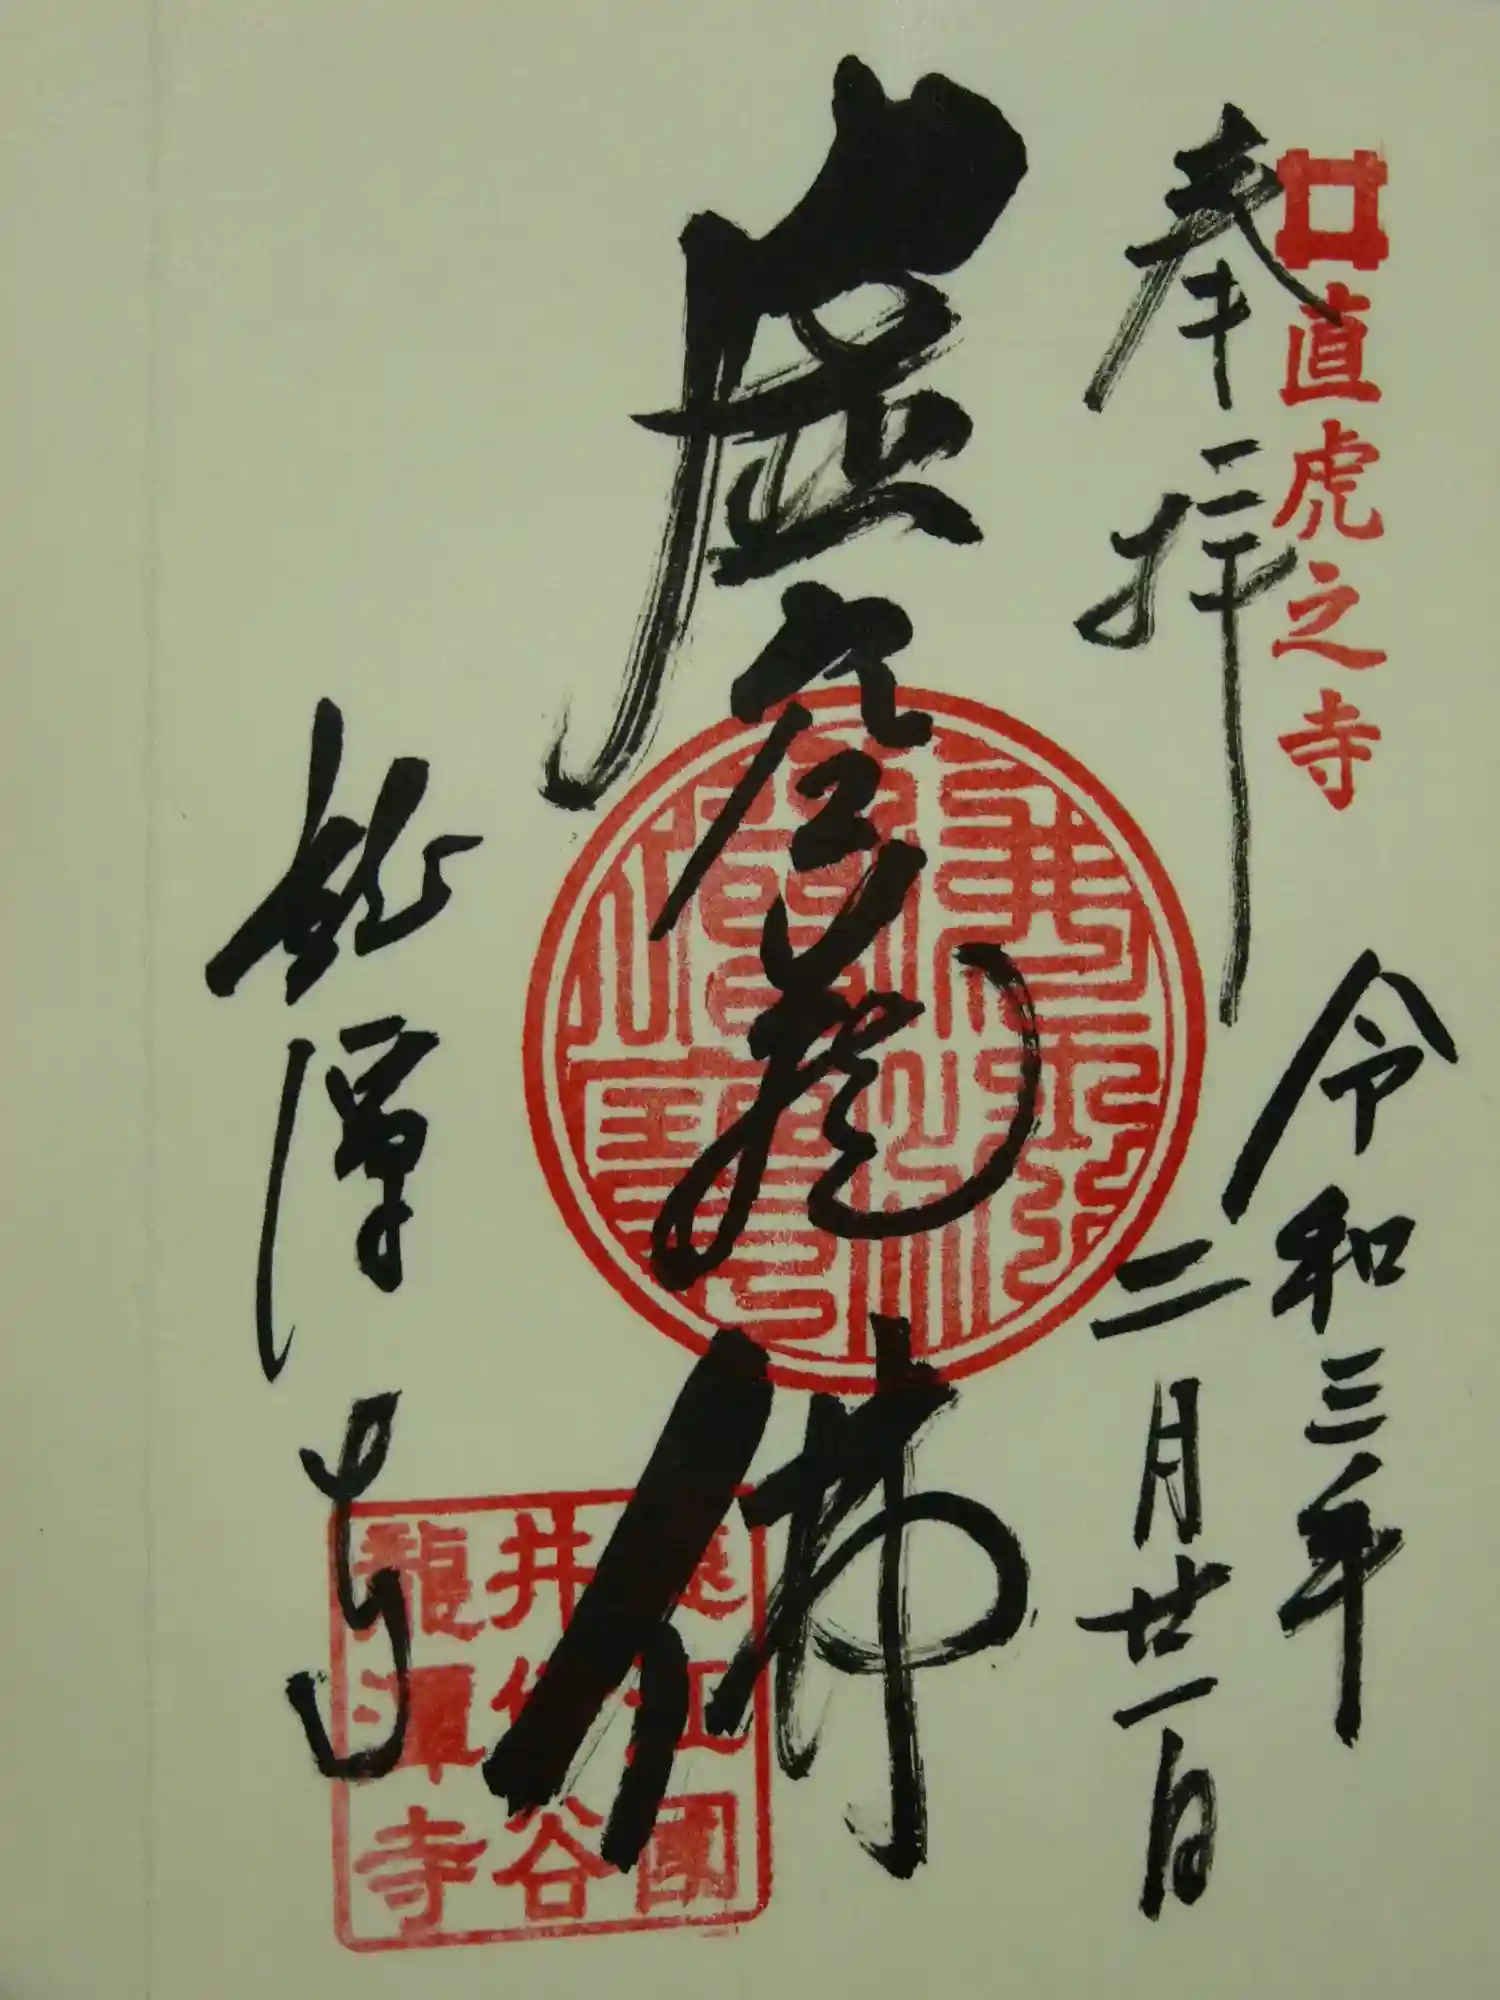 直虎之寺
奉拝
令和三年
二月廿一日
虚空蔵佛
龍潭寺
遠江國
井伊谷
龍潭寺